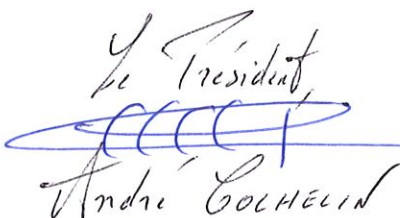 Le Président,
André COCHELIN